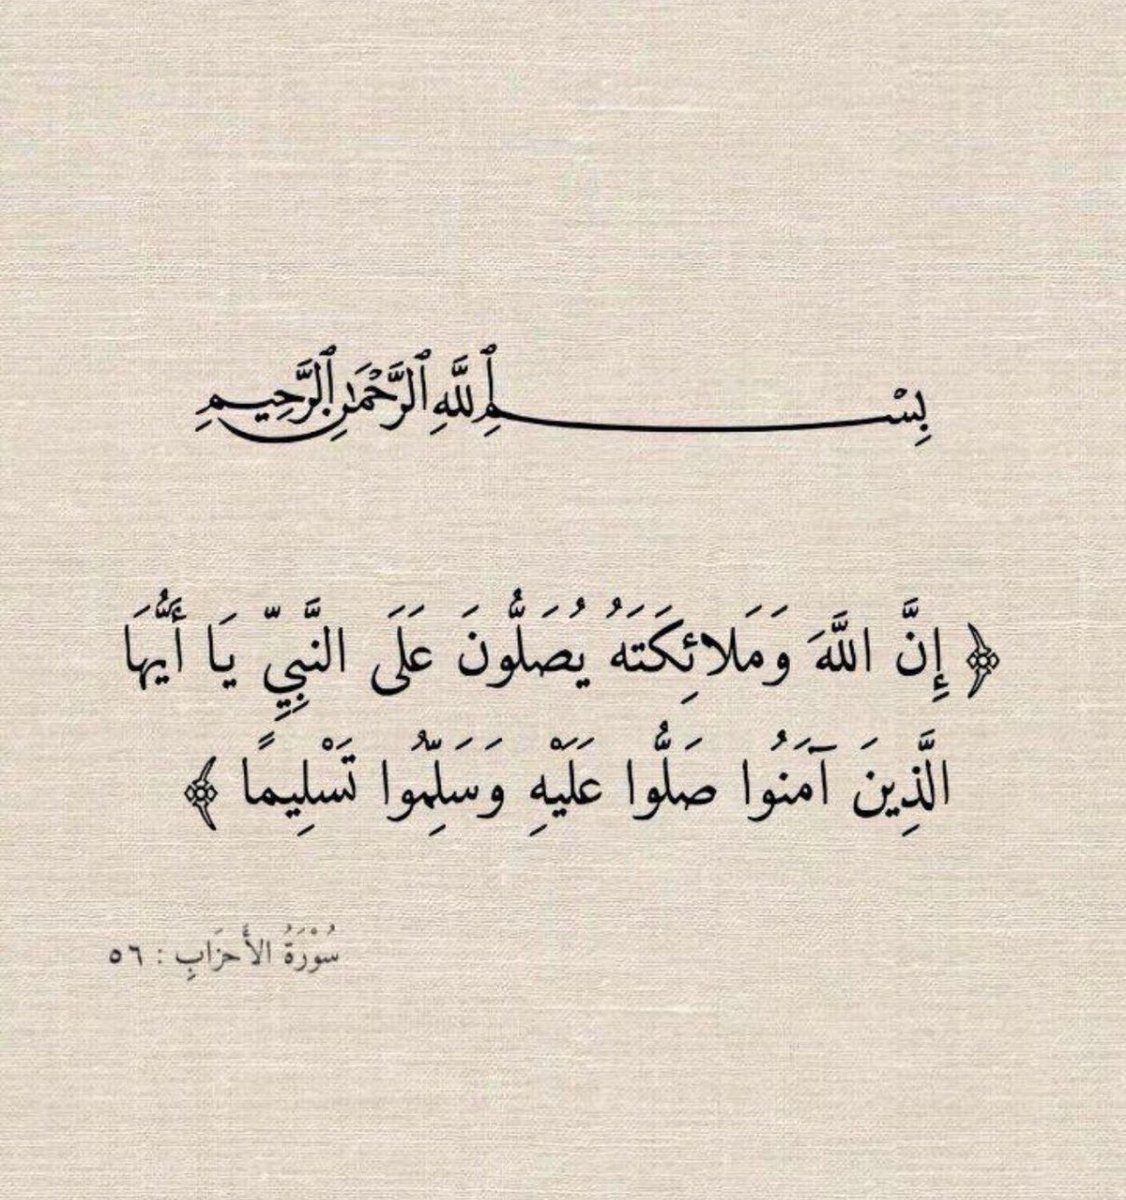 بِسْمِ ٱللَّهِ ٱلرَّحْمَٰنِ ٱلرَّحِيمِ
﴿ إِنَّ اللَّهَ وَمَلَائِكَتَهُ يُصَلُّونَ عَلَى النَّبِيِّ يَا أَيُّهَا
الَّذِينَ آمَنُوا صَلُّوا عَلَيْهِ وَسَلِّمُوا تَسْلِيمًا ﴾
سُوْرَةُ الأَحزَابِ : ٥٦